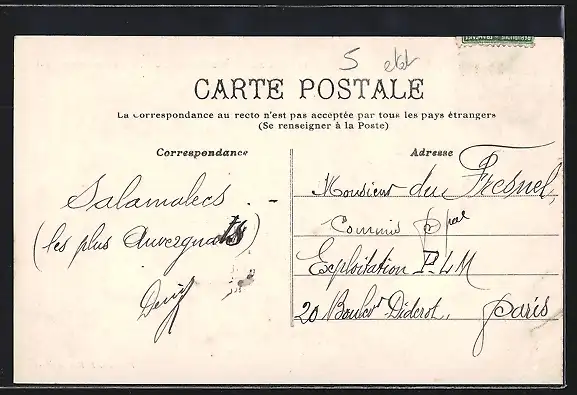 RÉPUBLIQUE FRANÇAISE
5 etat
CARTE POSTALE
La correspondance au recto n'est pas acceptée par tous les pays étrangers
(Se renseigner à la Poste)
Correspondance
Adresse
Salamalecs
(les plus Auvergnats)
Monsieur du Fresnel,
Commis ppal
Exploitation PLM
20 Boulevr Diderot, Paris